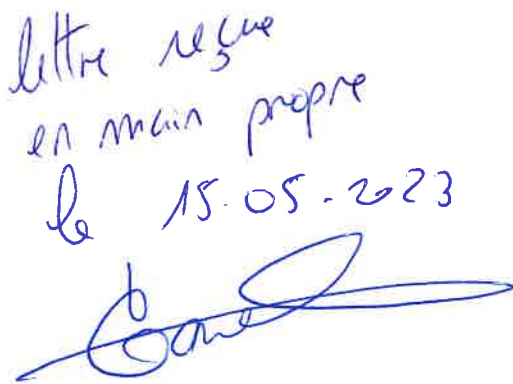 lettre reçue
en main propre
le 15.05.2023